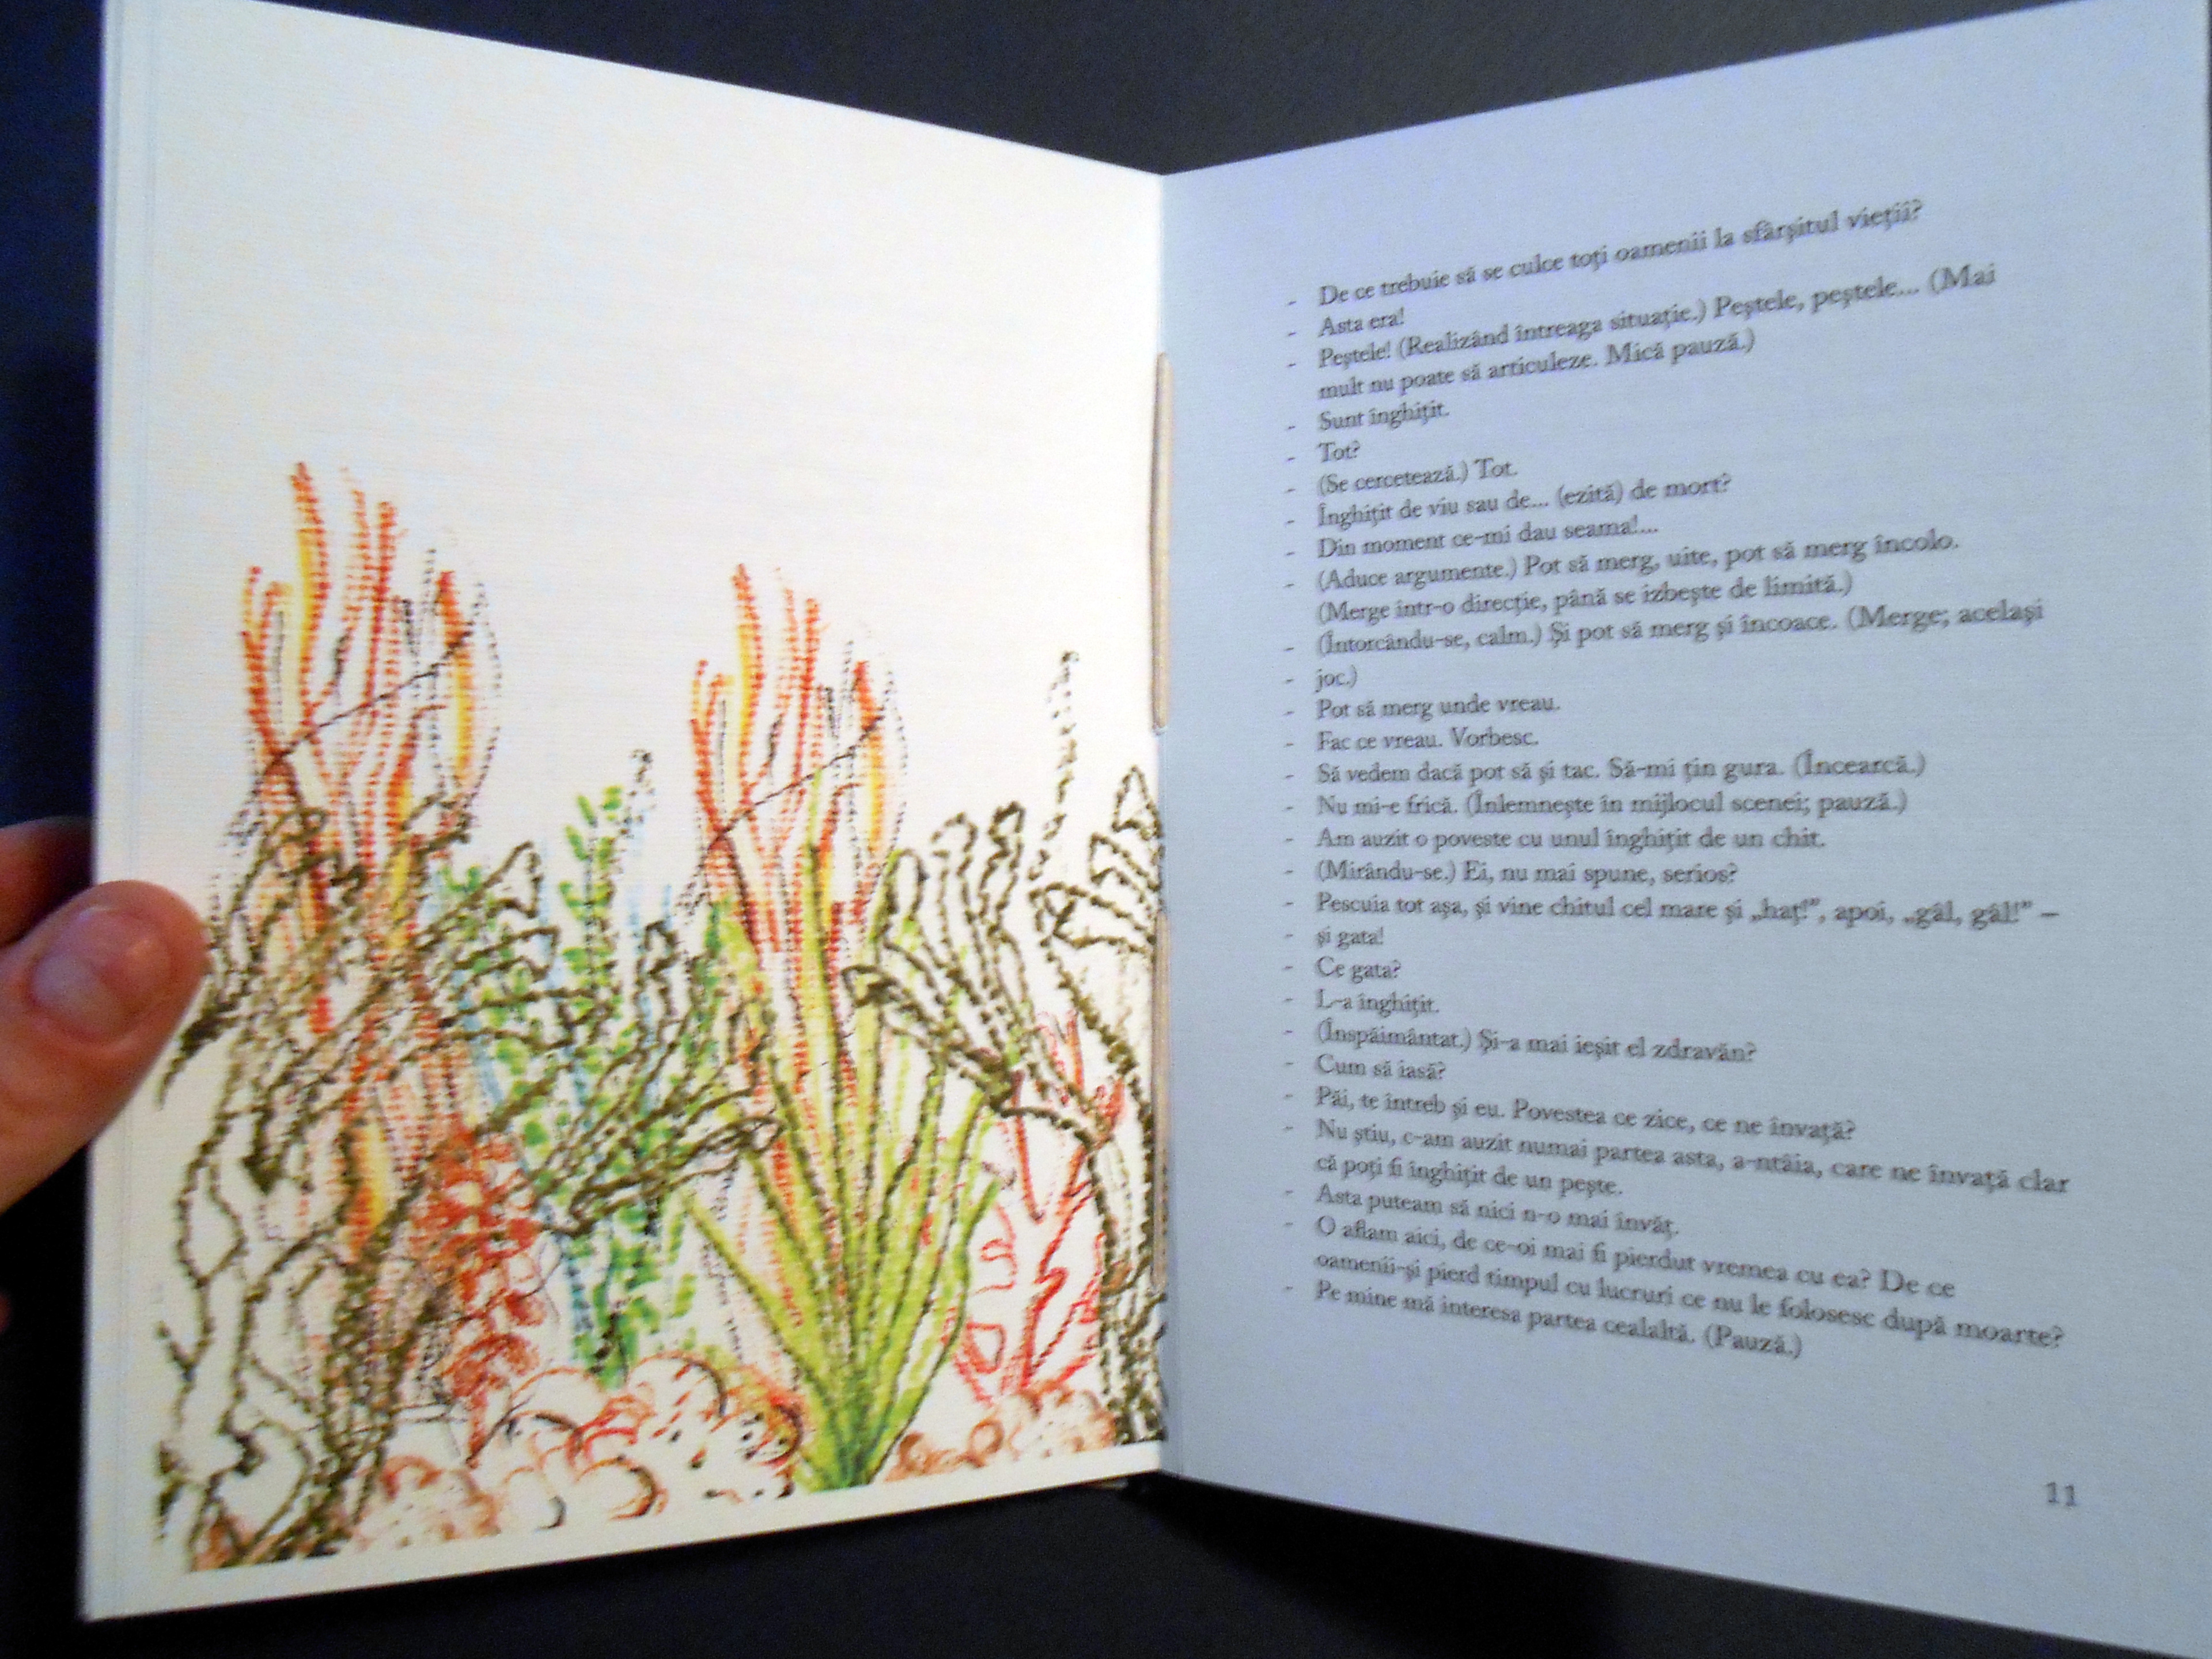 - De ce trebuie să se culce toţi oamenii la sfârşitul vieţii?
- Asta era!
- Peştele! (Realizând întreaga situaţie.) Peştele, peştele... (Mai
mult nu poate să articuleze. Mică pauză.)
- Sunt înghiţit.
- Tot?
- (Se cercetează.) Tot.
- Înghiţit de viu sau de... (ezită) de mort?
- Din moment ce-mi dau seama!...
- (Aduce argumente.) Pot să merg, uite, pot să merg încolo.
(Merge într-o direcţie, până se izbeşte de limită.)
- (Întorcându-se, calm.) Şi pot să merg şi încoace. (Merge; acelaşi
- joc.)
- Pot să merg unde vreau.
- Fac ce vreau. Vorbesc.
- Să vedem dacă pot să şi tac. Să-mi ţin gura. (Încearcă.)
- Nu mi-e frică. (Înlemneşte în mijlocul scenei; pauză.)
- Am auzit o poveste cu unul înghiţit de un chit.
- (Mirându-se.) Ei, nu mai spune, serios?
- Pescuia tot aşa, şi vine chitul cel mare şi „haţ!”, apoi, „gâl, gâl!” –
- şi gata!
- Ce gata?
- L-a înghiţit.
- (Înspăimântat.) Şi-a mai ieşit el zdravăn?
- Cum să iasă?
- Păi, te întreb şi eu. Povestea ce zice, ce ne învaţă?
- Nu ştiu, c-am auzit numai partea asta, a-ntâia, care ne învaţă clar
că poţi fi înghiţit de un peşte.
- Asta puteam să nici n-o mai învăţ.
- O aflam aici, de ce-oi mai fi pierdut vremea cu ea? De ce
oamenii-şi pierd timpul cu lucruri ce nu le folosesc după moarte?
- Pe mine mă interesa partea cealaltă. (Pauză.)
11